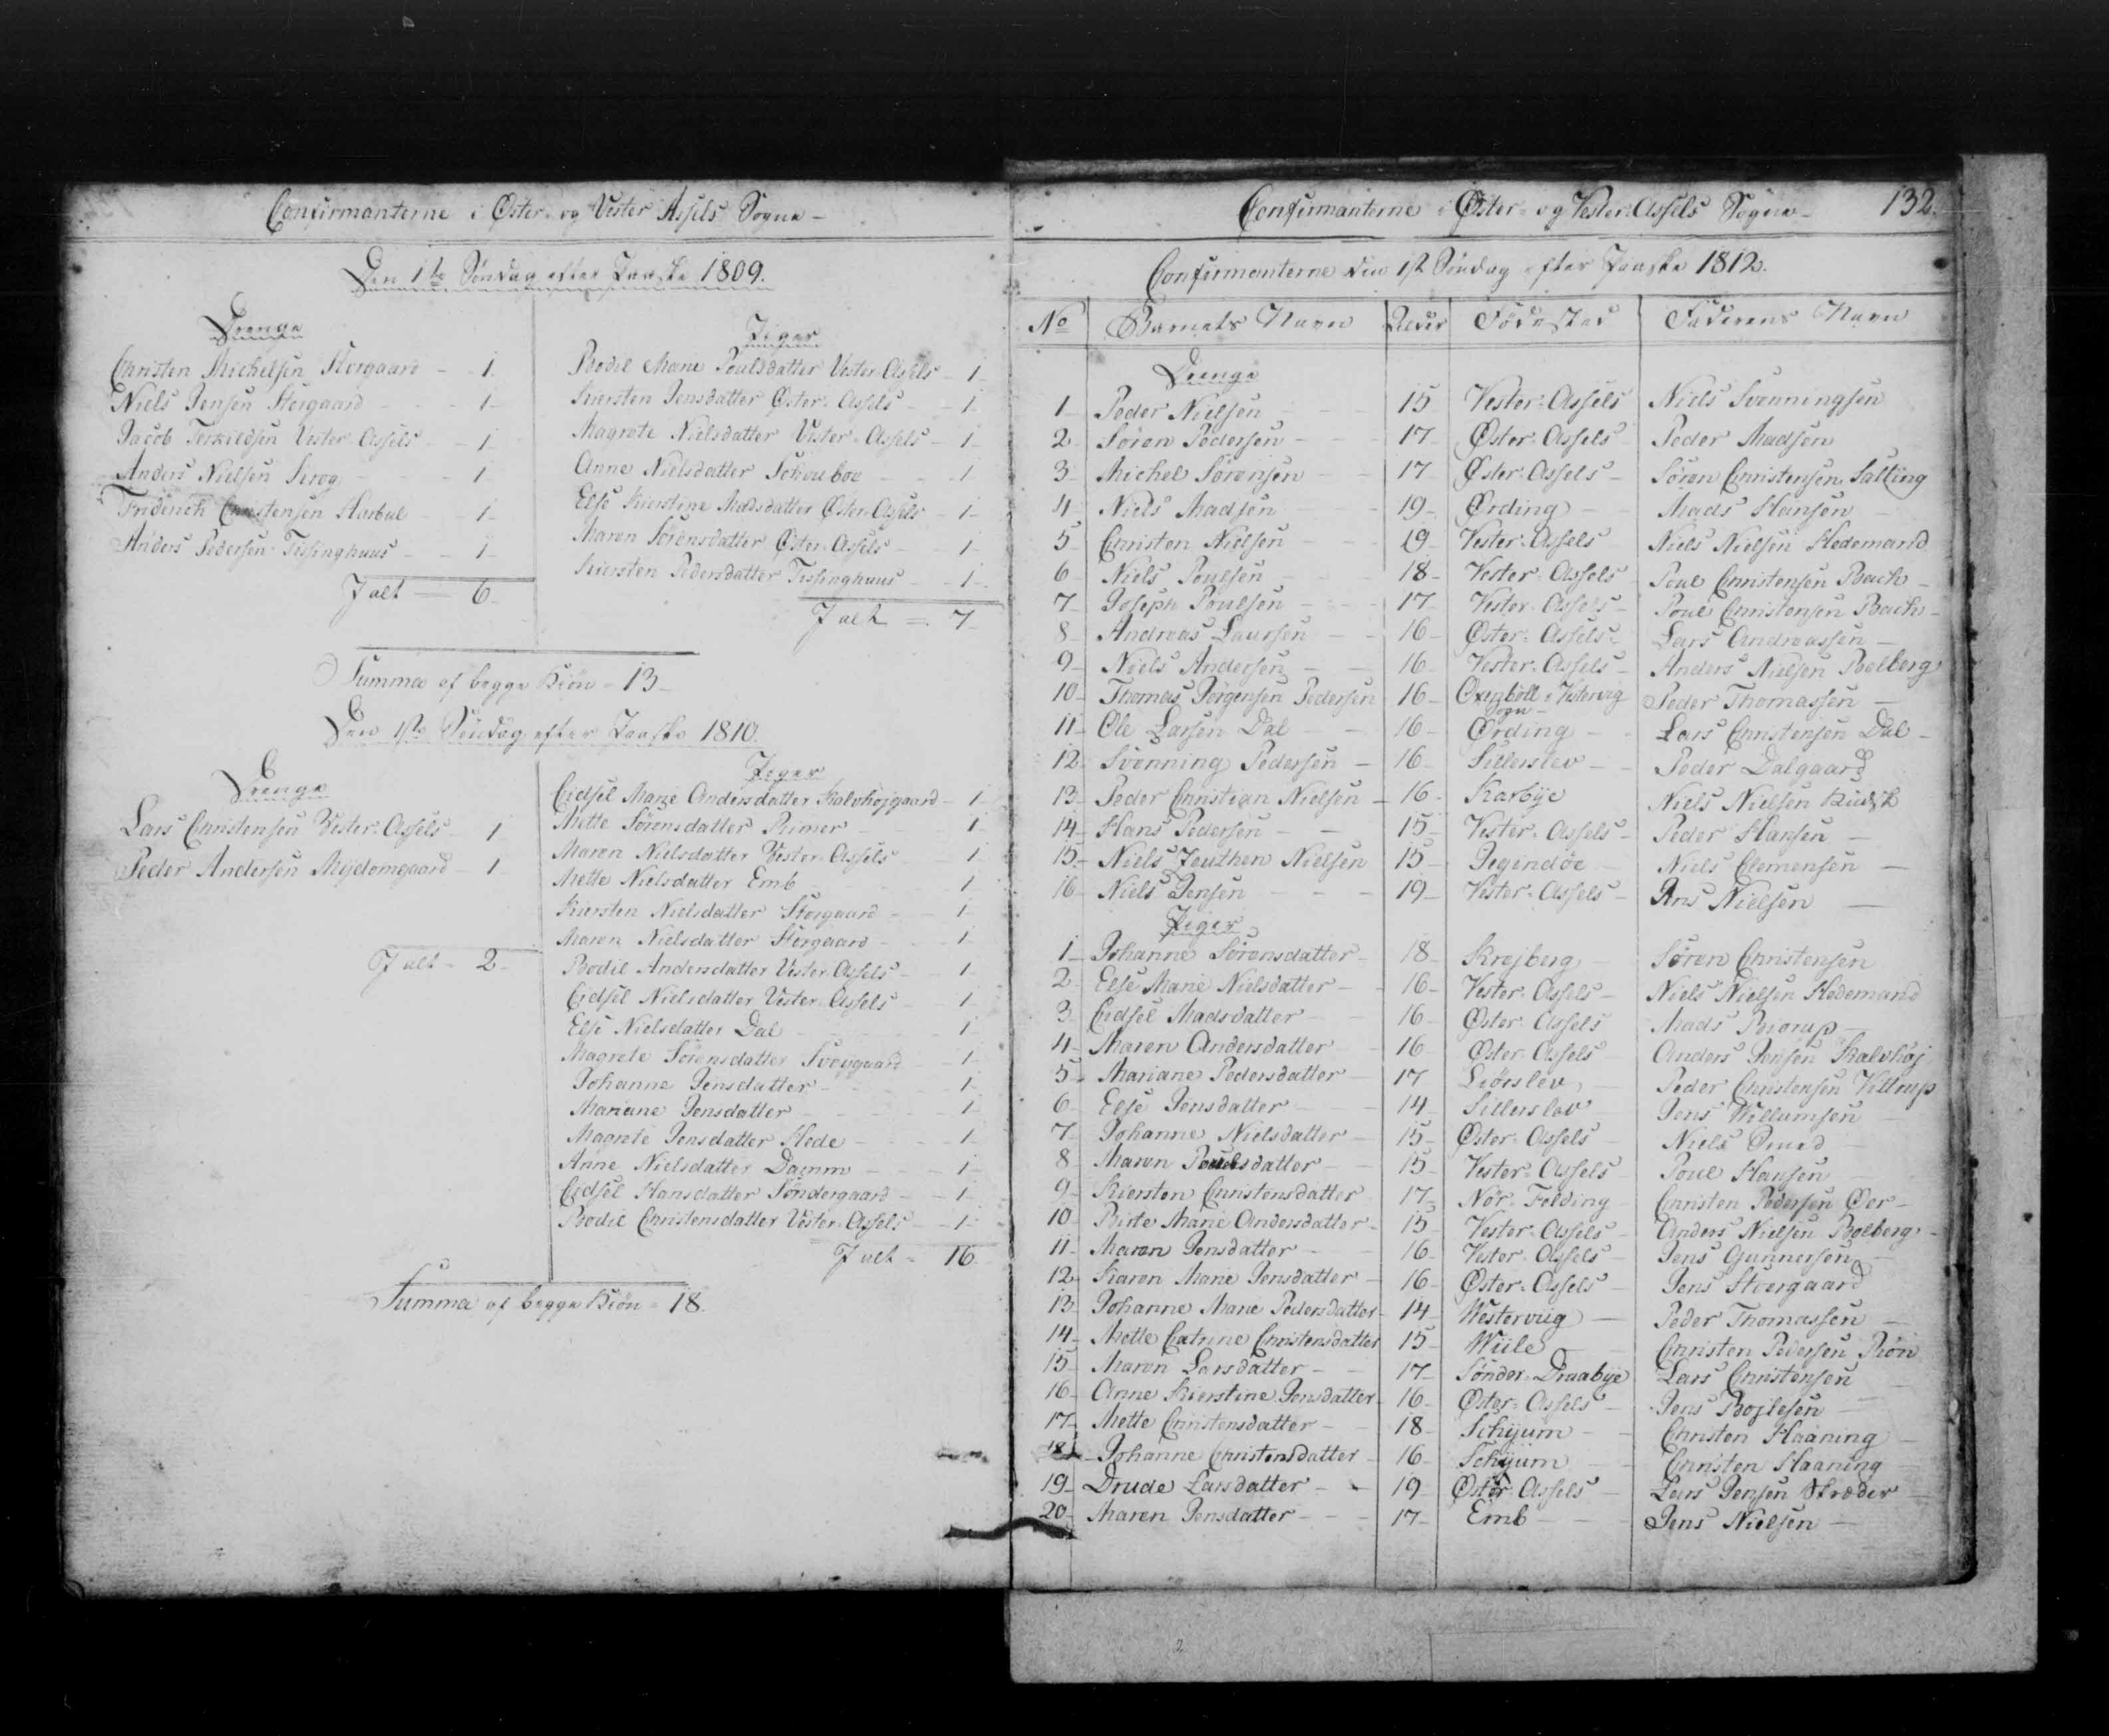 Confirmanterne i Øster- og Vester Assels Sogne
Den 1ste Søndag efter Paaske 1809.
Drenge
Christen Michelsen Storgaard - 1
Niels Jensen Storgaard - 1
Jacob Terkildsen Vester-Assels - 1
Anders Nielsen Krog - 1
Friderich Christensen Harbal - 1
Anders Pedersen Tissinghuus - 1
I alt - 6
Piger
Bodil Marie Poulsdatter Vester-Assels - 1
Kiersten Jensdatter Øster-Assels - 1
Magrete Nielsdatter Vester-Assels - 1
Anne Nielsdatter Schouboe - 1
Else Kierstine Madsdatter Øster-Assels - 1
Maren Sörensdatter Øster-Assels - 1
Kiersten Pedersdatter Tissinghuus - 1
I alt = 7
Summa af begge Kiön - 13
Den 1ste Söndag efter Paaske 1810.
Drenge
Lars Christensen Vester-Assels 1
Peder Andersen Mydomgaard - 1
I alt - 2
Piger
Cidsel Marie Andersdatter Kalvhöjgaard - 1
Mette Sörensdatter Rimer 1
Maren Nielsdatter Vester-Assels 1
Mette Nielsdatter Emb 1
Kiersten Nielsdatter Storgaard 1
Maren Nielsdatter Storgaard - 1
Bodil Andersdatter Vester-Assels - 1
Cidsel Nielsdatter Vester-Assels 1
Else Nielsdatter Dal 1
Magrete Sörensdatter - 1
Johanne Jensdatter - 1
Mariane Jensdatter - 1
Magrete Jensdatter Hede - 1
Anne Nielsdatter Damm - 1
Cidsel Hansdatter Söndergaard - 1
Bodil Christensdatter Vester-Assels - 1
I alt - 16
Summa af begge Kiön - 18.
Confirmanterne i Øster- og Vester-Assels Sogne 132.
Confirmanterne den 1ste Söndag efter Paaske 1812.
No Barnets Navn Alder Födested Faderens Navn
Drenge
1 Peder Nielsen 15 Vester-Assels Niels Svenningsen
2 Sören Pedersen 17 Øster-Assels Peder Madsen
3 Michel Sörensen 17 Øster-Assels Sören Christensen Salling
4 Niels Madsen 19 Ørding Mads Hansen
5 Christen Nielsen 19 Vester-Assels Niels Nielsen Hedemand
6 Niels Poulsen 18 Vester-Assels Poul Christensen Bach
7 Joseph Poulsen 17 Vester-Assels Poul Christensen Bach
8 Andreas Laursen 16 Øster-Assels Lars Andreassen
9 Niels Andersen 16 Vester-Assels Anders Nielsen Bolberg
10 Thomas Jörgensen Pedersen 16 Oxenböll i Vestervig Sogn Peder Thomassen
11 Ole Larsen Dal 16 Ørding Lars Christensen Dal
12 Svenning Pedersen 16 Sillerslev Peder Dalgaard
13 Peder Christian Nielsen 16 Karbye Niels Nielsen
14 Hans Pedersen 15 Vester-Assels Peder Hansen
15 Niels Zeuthen Nielsen 15 Jegindöe Niels Clemensen
16 Niels Jensen 19 Vester-Assels Jens Nielsen
Piger
1 Johanne Sörensdatter 18 Krejberg Sören Christensen
2 Else Marie Nielsdatter 16 Vester-Assels Niels Nielsen Hedemand
3 Cidsel Madsdatter 16 Øster-Assels Mads
4 Maren Andersdatter 16 Øster-Assels Anders Jensen Kalvhöj
5 Mariane Pedersdatter 17 Liörslev Peder Christensen Vittrup
6 Else Jensdatter 14 Sillerslev Jens Willumsen
7 Johanne Nielsdatter 15 Øster-Assels Niels Smed
8 Maren Poulsdatter 15 Vester-Assels Poul Hansen
9 Kiersten Christensdatter 17 Nör-Felding Christen Pedersen Öer
10 Birte Marie Andersdatter 15 Vester-Assels Anders Nielsen Bolberg
11 Maren Jensdatter 16 Vester-Assels Jens Gunnersen
12 Karen Marie Jensdatter 16 Øster-Assels Jens Storgaard
13 Johanne Marie Pedersdatter 14 Westerviig Peder Thomassen
14 Mette Catrine Christensdatter 15 Wiile Christen Pedersen
15 Maren Larsdatter 17 Sönder-Draabye Lars Christensen
16 Anne Kierstine Jensdatter 16 Øster-Assels Jens Bojlesen
17 Mette Christensdatter 18 Schyum Christen Haaning
18 Johanne Christensdatter 16 Schyum Christen Haaning
19 Drude Larsdatter 19 Øster-Assels Lars Jensen Skræder
20 Maren Jensdatter 17 Emb Jens Nielsen